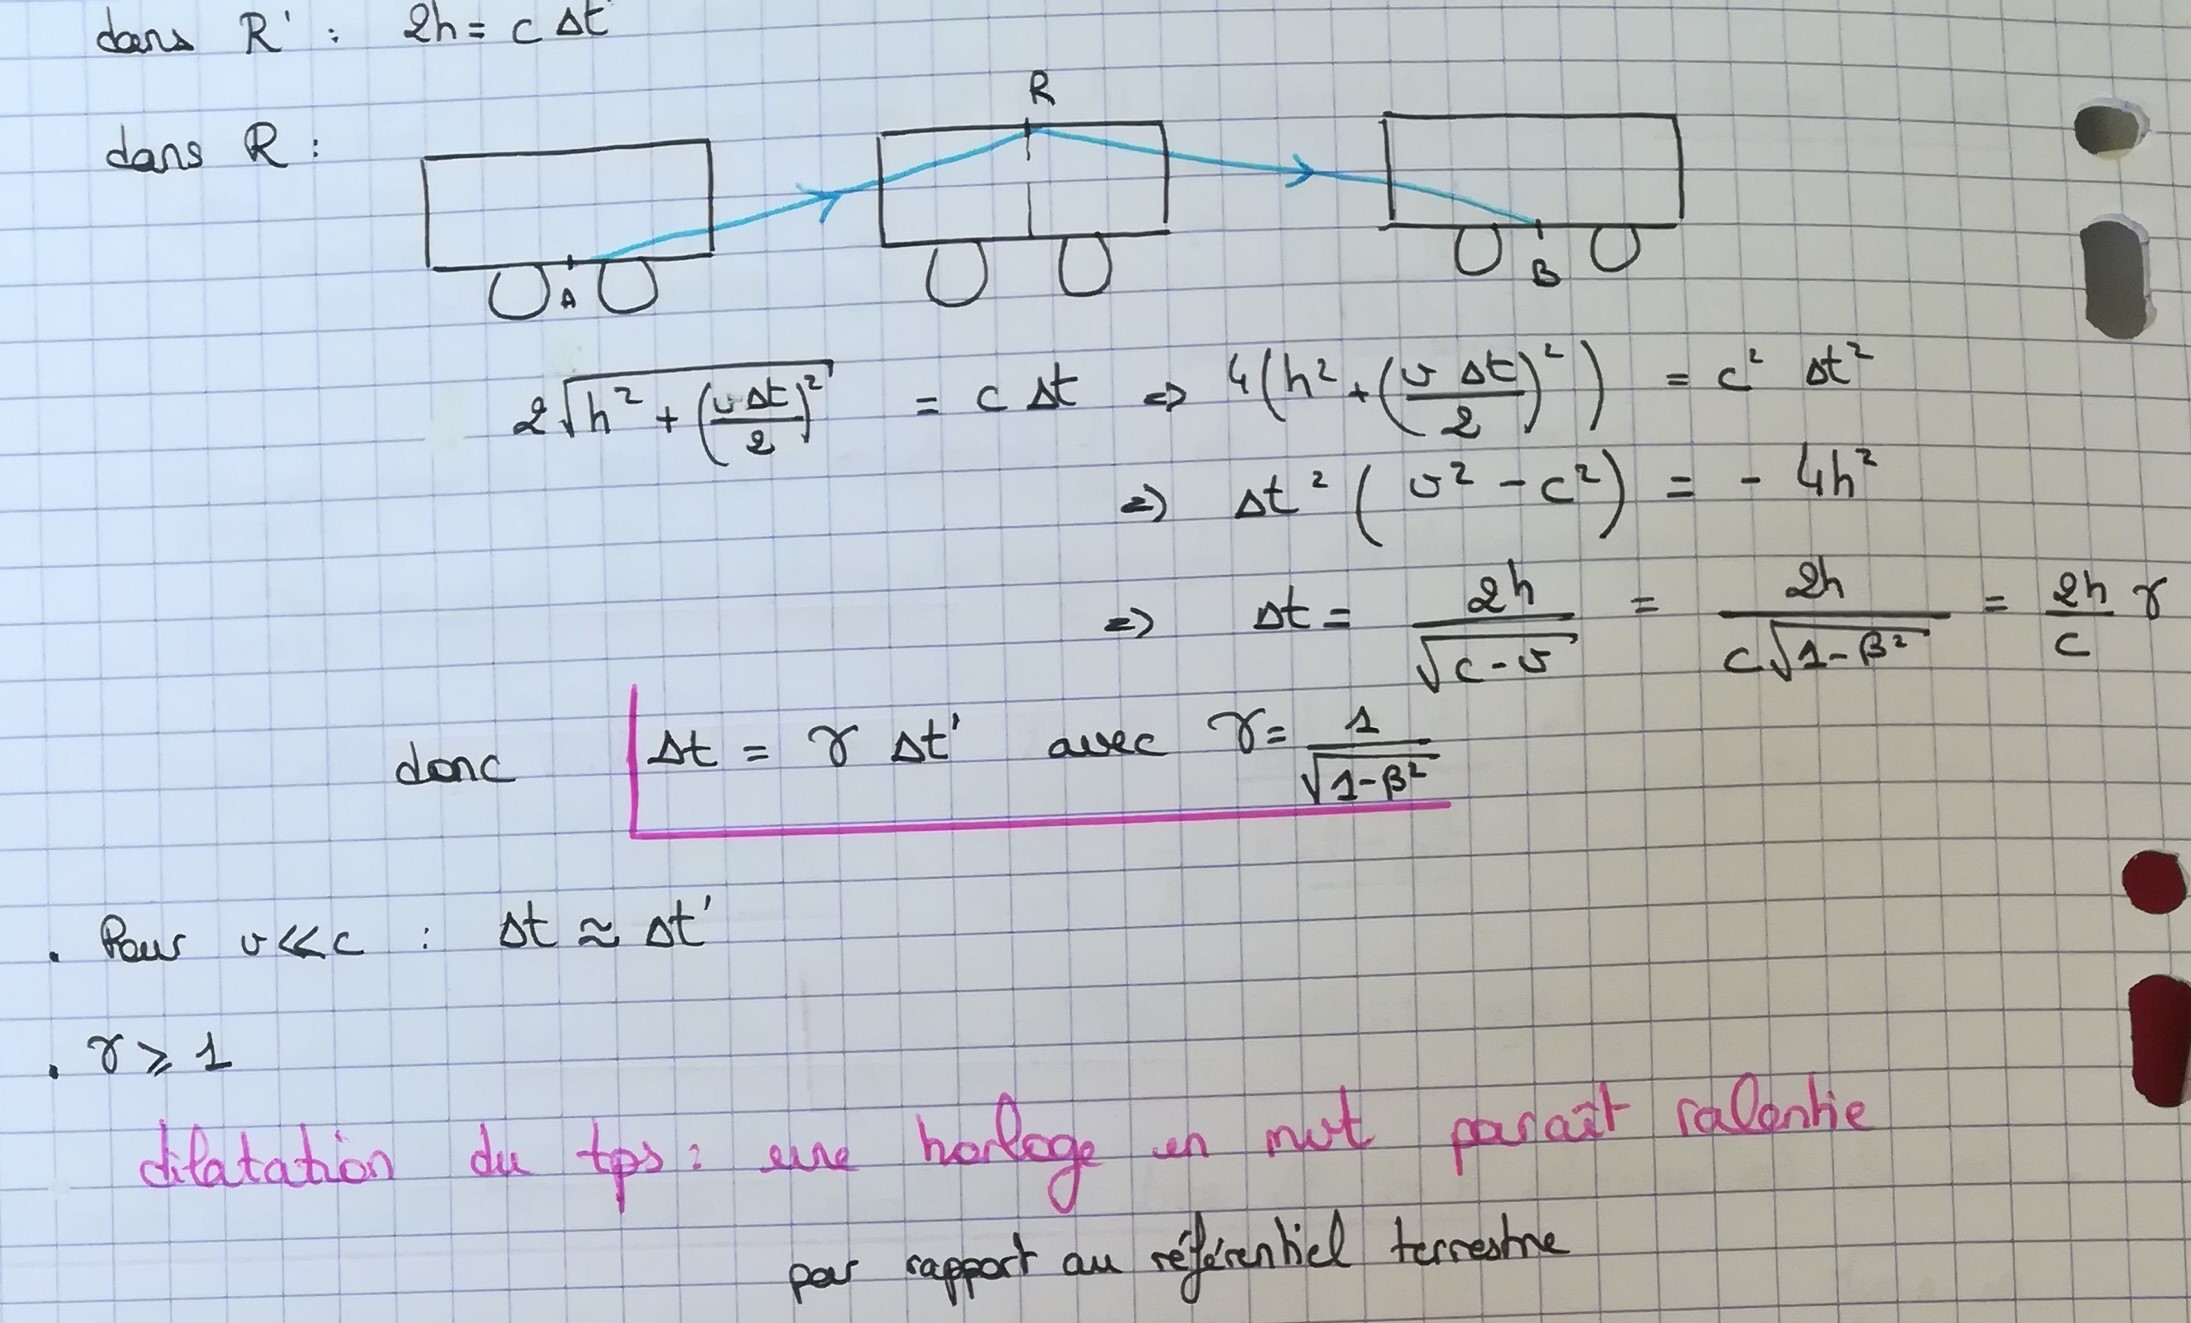 dans R' : 2h = c Δt
R
dans R :
A
B
2√(h² + (vΔt/2)²) = c Δt => 4(h² + (v Δt/2)²) = c² Δt²
=> Δt² (v² - c²) = - 4h²
=> Δt = 2h/√(c - v) = 2h/(c√(1-β²)) = 2h/c γ
donc Δt = γ Δt' avec γ = 1/√(1-β²)
. Pour v<<c : Δt ≈ Δt'
. γ ⩾ 1
dilatation du tps : une horloge en mvt paraît ralentie
par rapport au référentiel terrestre